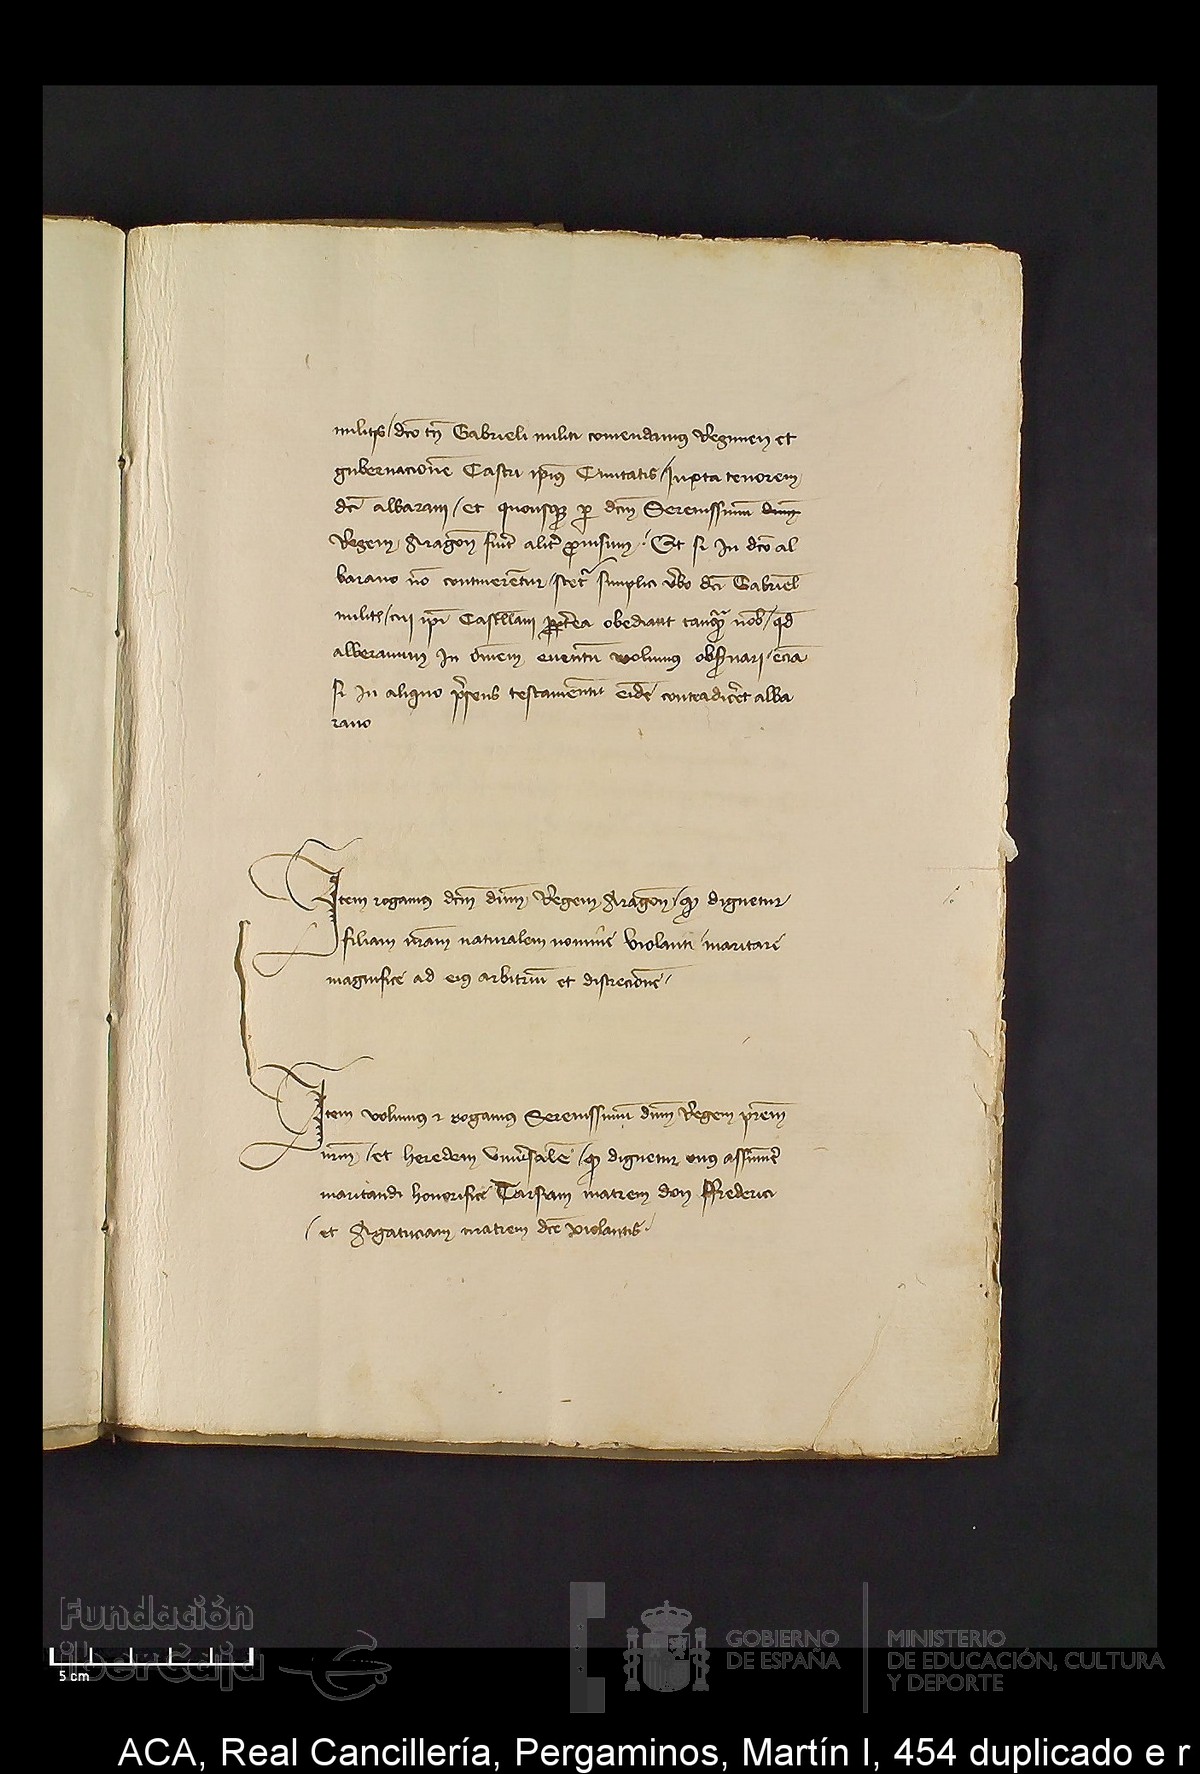 militis / dco tn Gabrieli militi comendamus Regimen et
gubernacione Castri ipius Civitatis / Juxta tenorem
dci albarani / et quousque per dcm Serenissimum dnum
Regem Aragon fuit alit provisum / Et si In dco al
barano no contineretur / stet simplici vbo dci Gabriel
milits / cui ipi Castllani obediant tanqua nob / qd
alberanum In omem eventu volumus observari / ecia
si In aliquo presens testamentu eide contradicet alba
rano
Item rogamus dcm dnm Regem Aragon / q dignetur
filiam nram naturalem nomine violanti maritare
magnifice ad eius arbitriu et discrecione /
Item volumus & rogamus Serenissimu dnm Regem prem
nrm / et heredem Univsale / q dignetur onus assumere
maritandi honorifice Tarsiam matrem don Ffrederici
/ et Agatuciam matrem dce violantis /
Fundación
iberCaja
5 cm
GOBIERNO
DE ESPAÑA
MINISTERIO
DE EDUCACIÓN, CULTURA
Y DEPORTE
ACA, Real Cancillería, Pergaminos, Martín I, 454 duplicado e r